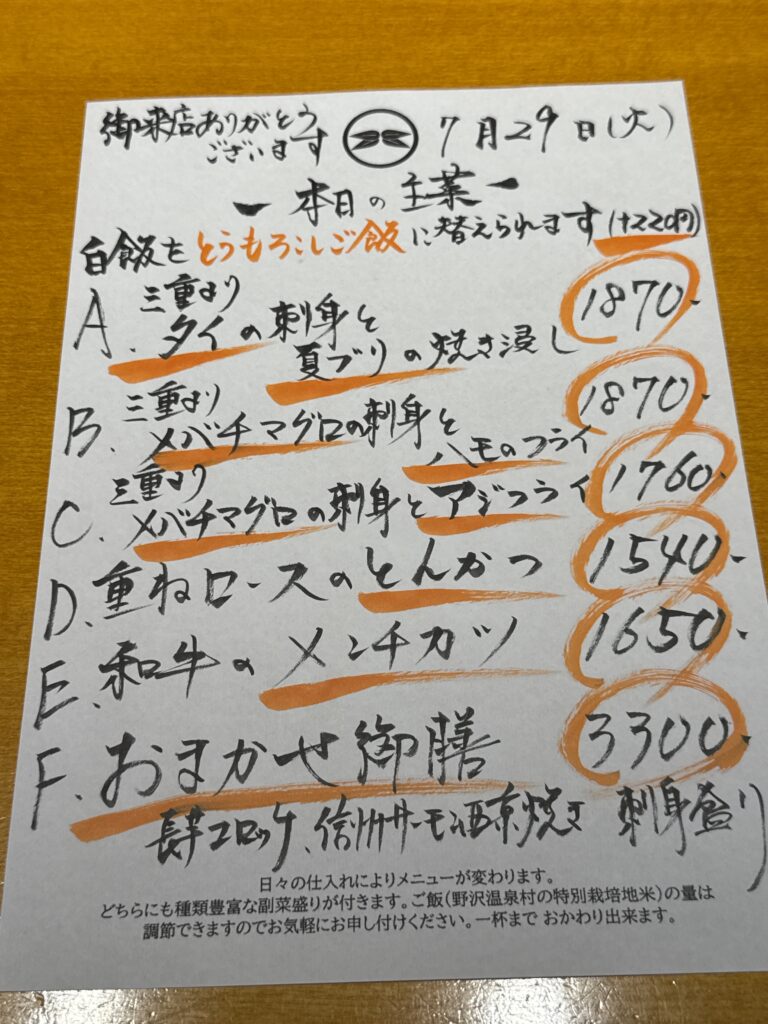 御来店ありがとう
ございます
7月29日(火)
ー本日の主菜ー
白飯をとうもろこしご飯に替えられます(+220円)
A. 三重より
タイの刺身と
夏ブリの焼き浸し 1870-
B. 三重より
メバチマグロの刺身と
ハモのフライ 1870-
C. 三重より
メバチマグロの刺身とアジフライ 1760-
D. 重ねロースのとんかつ 1540-
E. 和牛のメンチカツ 1650-
F. おまかせ御膳 3300-
長芋コロッケ、信州サーモン西京焼き 刺身盛り
日々の仕入れによりメニューが変わります。
どちらにも種類豊富な副菜盛りが付きます。ご飯(野沢温泉村の特別栽培地米)の量は
調節できますのでお気軽にお申し付けください。一杯まで おかわり出来ます。